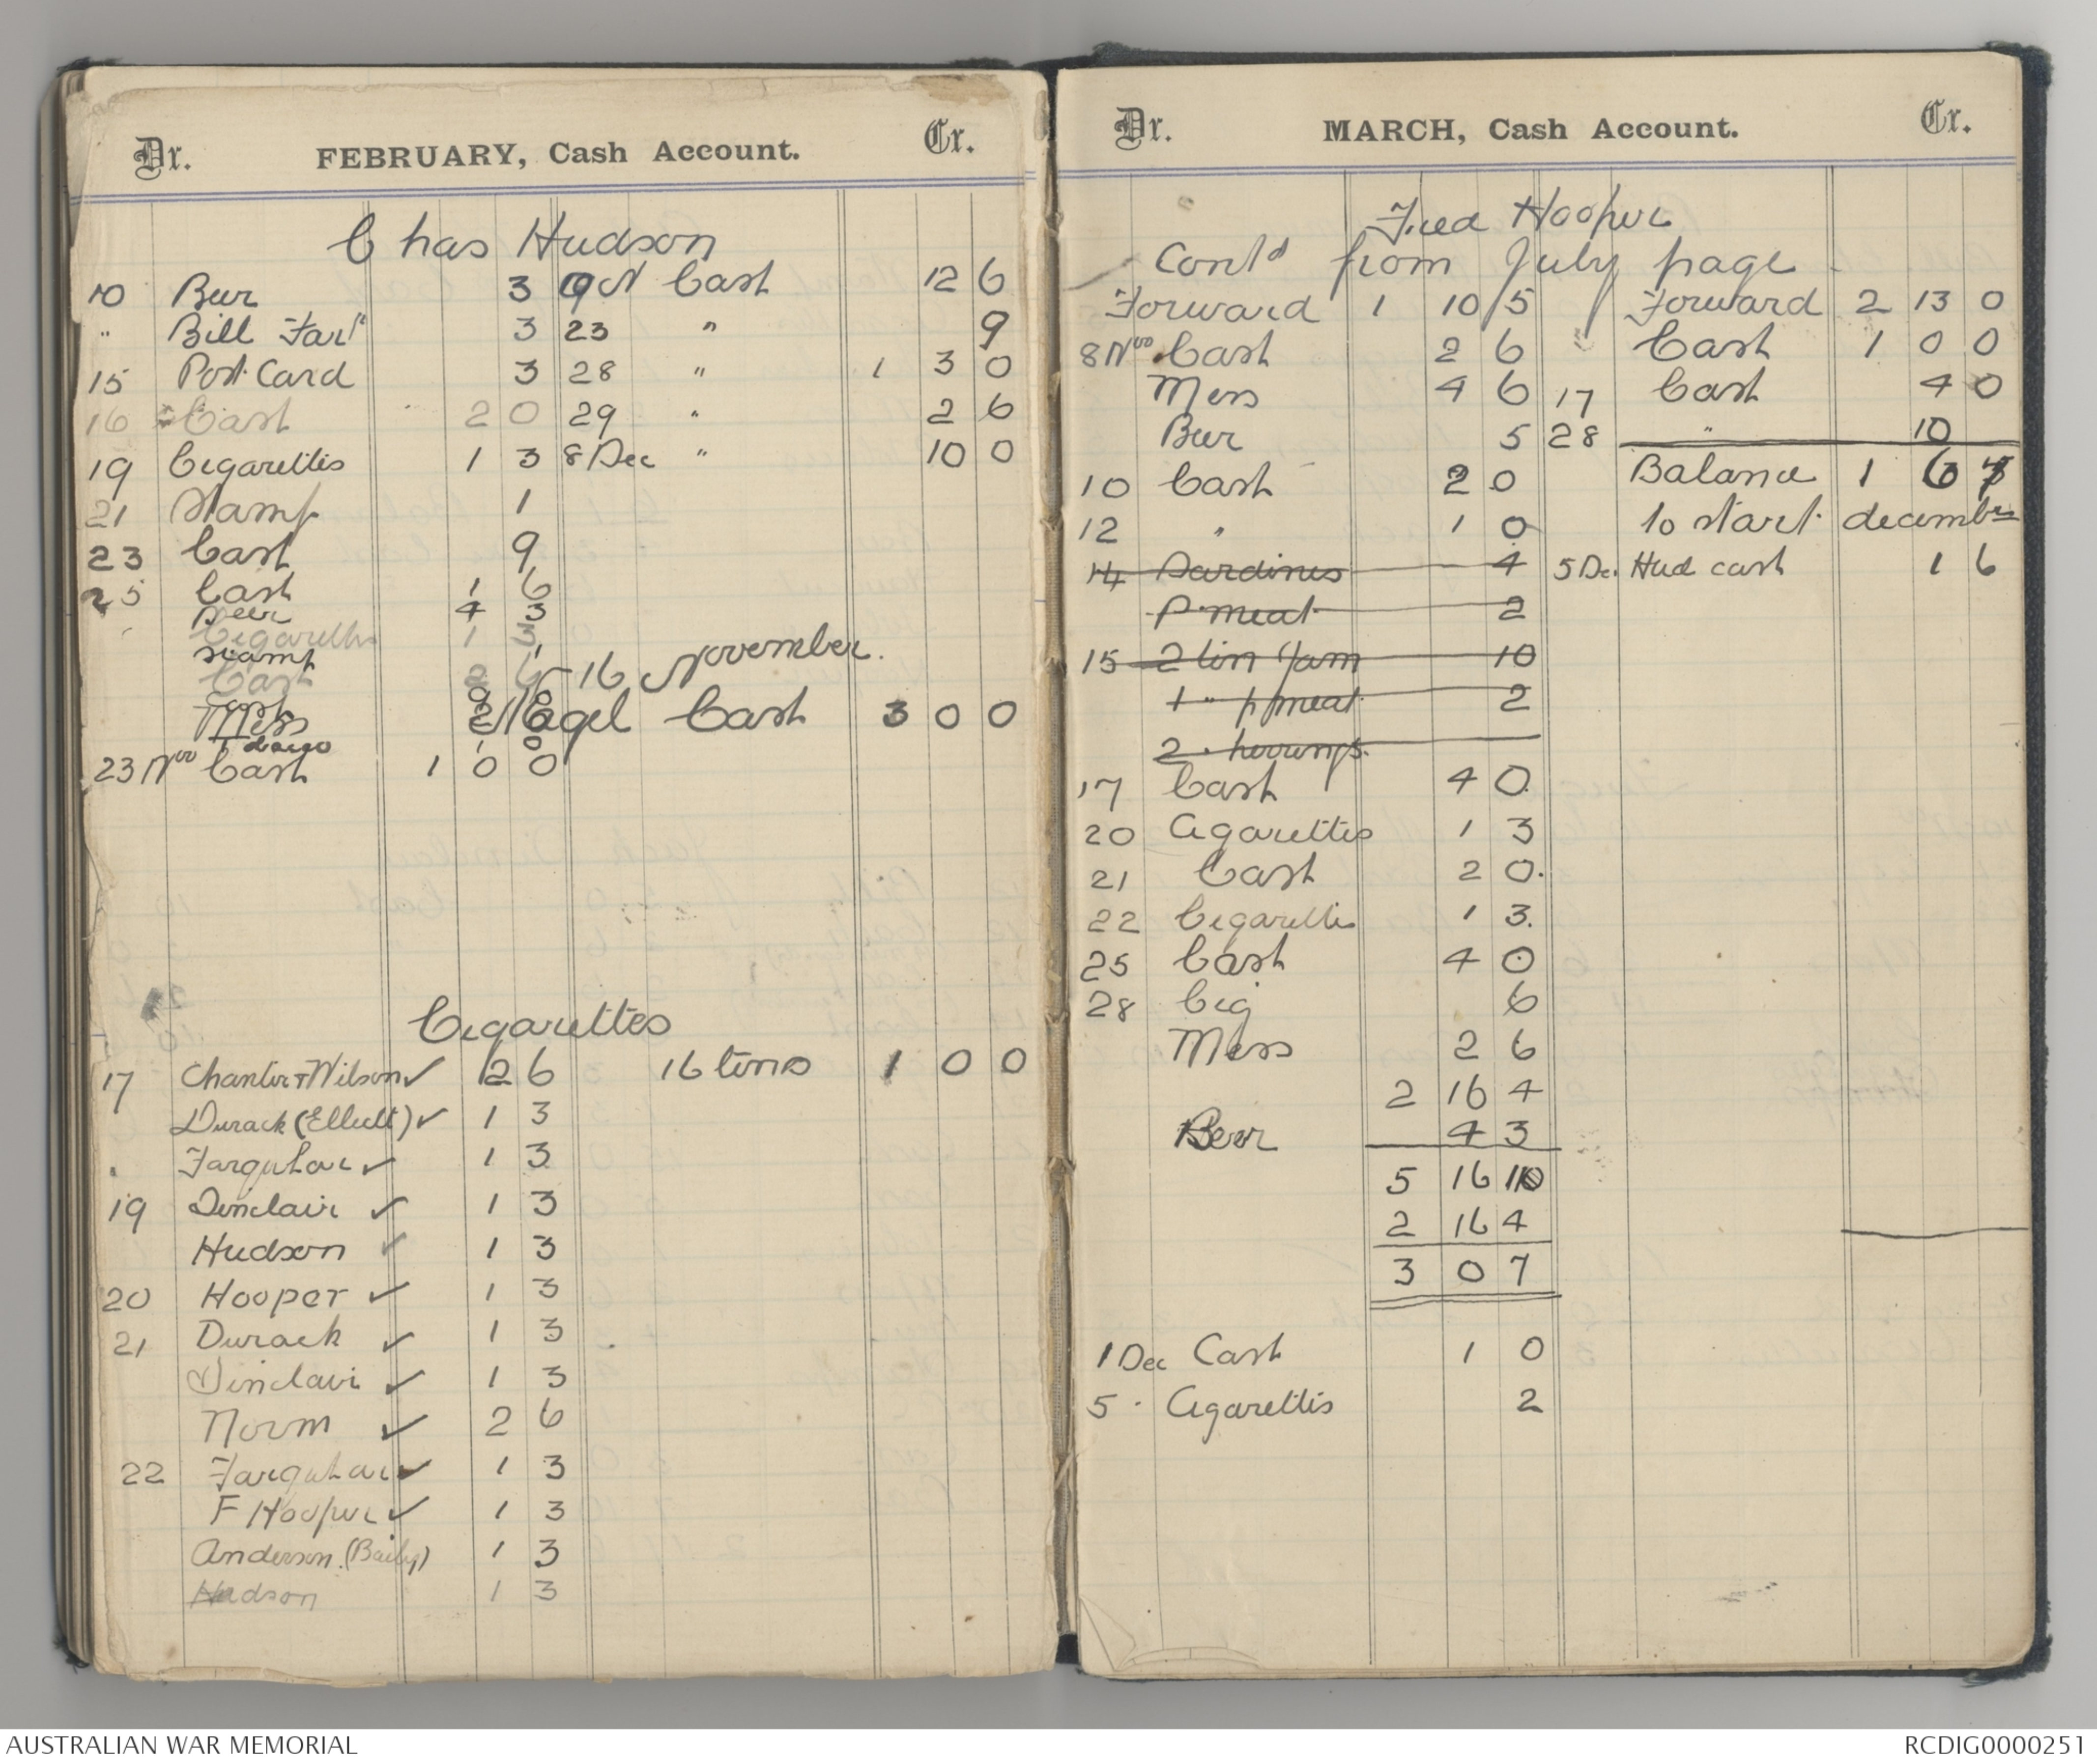 Dr. FEBRUARY, Cash Account. Cr.
Chas Hudson
10 Beer 3 Oct Cash 12 6
" Bill Far 3 23 " 9
15 Post Card 3 28 " 1 3 0
16 Cash 2 0 29 " 2 6
19 Cigarettis 1 3 8 Dec " 10 0
21 Stamp 1
23 Cash 9
25 Cash 1 6
Beer 4 3
Cigarettes 1 3
Stamp
Cash 2 6 16 November.
Mess 2 Nagel Cash 3 0 0
23 Nov Cash 1 0 0
Cigarettes
17 Chanter & Wilson ✓ 2 6 16 tins 1 0 0
Durack (Elliott) ✓ 1 3
Farquhar ✓ 1 3
19 Sinclair ✓ 1 3
Hudson ✓ 1 3
20 Hooper ✓ 1 3
21 Durack ✓ 1 3
Sinclair ✓ 1 3
Norm ✓ 2 6
22 Farquhar ✓ 1 3
F Hooper ✓ 1 3
Anderson (Baily) 1 3
Hudson 1 3
Dr. MARCH, Cash Account. Cr.
Fred Hooper
Contd from July page
Forward 1 10 5 Forward 2 13 0
8 Nov Cash 2 6 Cash 1 0 0
Mess 4 6 17 Cash 4 0
Beer 5 28 " 10
10 Cash 2 0 Balance 1 6 7
12 " 1 0 to start december
14 Sardines 4 5 Dec Hud cash 1 6
P meat 2
15 2 tin Jam 10
1 " p meat 2
2 " herrings
17 Cash 4 0
20 Cigarettis 1 3
21 Cash 2 0
22 Cigarettis 1 3
25 Cash 4 0
28 Cig 6
Mess 2 6
2 16 4
Beer 4 3
5 16 11
2 16 4
3 0 7
1 Dec Cash 1 0
5 " Cigarettis 2
AUSTRALIAN WAR MEMORIAL RCDIG0000251